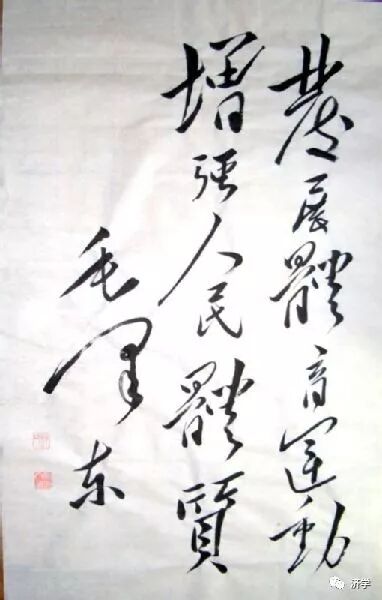 發展體育運動
增强人民體質
毛澤东
济学